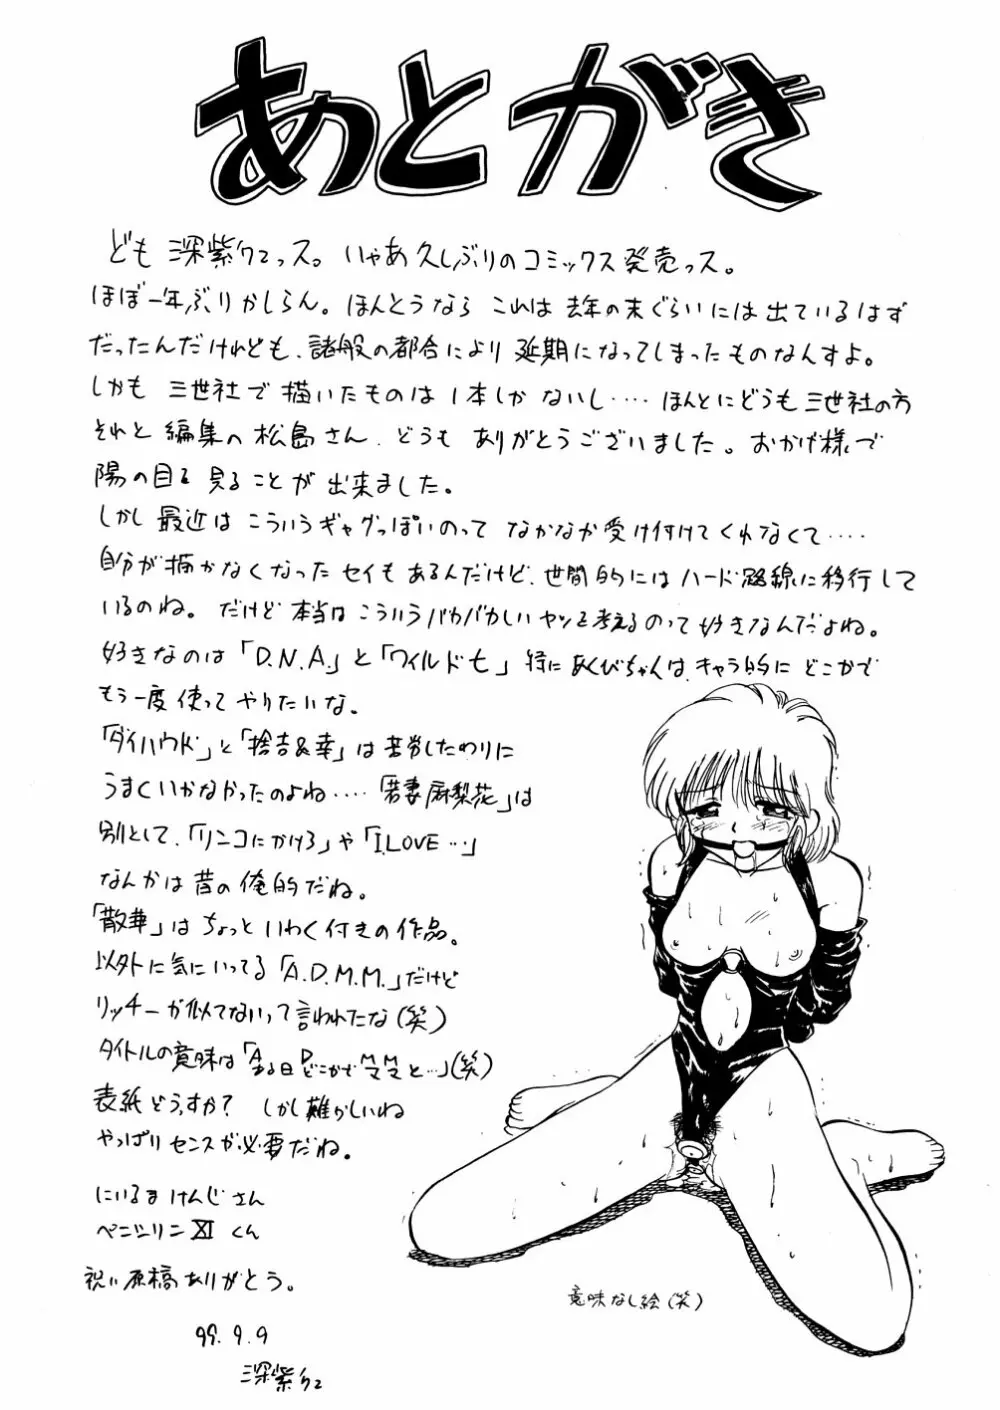 あとがき
ども 深紫クマっス。いやあ久しぶりのコミックス発売っス。
ほぼ一年ぶりかしらん。ほんとうなら これは 去年の末ぐらいには出ているはず
だったんだけれども、諸般の都合により 延期になってしまったものなんすよ。
しかも 三世社で 描いたものは 1本しか ないし‥‥ ほんとにどうも三世社の方
それと 編集の 松島さん、どうも ありがとうございました。おかげ様で
陽の目を 見ることが 出来ました。
しかし 最近は こういうギャグっぽいのって なかなか受け付けてくれなくて‥‥
自分が描かなくなったセイもあるんだけど、世間的にはハード路線に移行して
いるのね。だけど 本当は こういうバカバカしいヤツを考えるのって 好きなんだよね。
好きなのは「D.N.A.」と「ワイルド七」特に あくびちゃんは、キャラ的に どこかで
もう一度 使って やりたいな。
「ダイハウド」と「捨吉&幸」は 苦労したわりに
うまくいかなかったのよね‥‥「若妻 麻梨花」は
別として、「リンコにかけろ」や「I.LOVE…」
なんかは 昔の 俺的だね。
「散華」は ちょっと いわく付きの 作品。
以外に気にいってる「A.D.M.M.」だけど
リッチーが似てないって 言われたな(笑)
タイトルの意味は「ある日 どこかで ママと…」(笑)
A D M M
表紙どうっすか? しかし難かしいね
やっぱり センスが必要だね。
にいるま けんじ さん
ペニシリン XI くん
祝い原稿ありがとう。
99. 9. 9
深紫クマ
意味なし絵(笑)